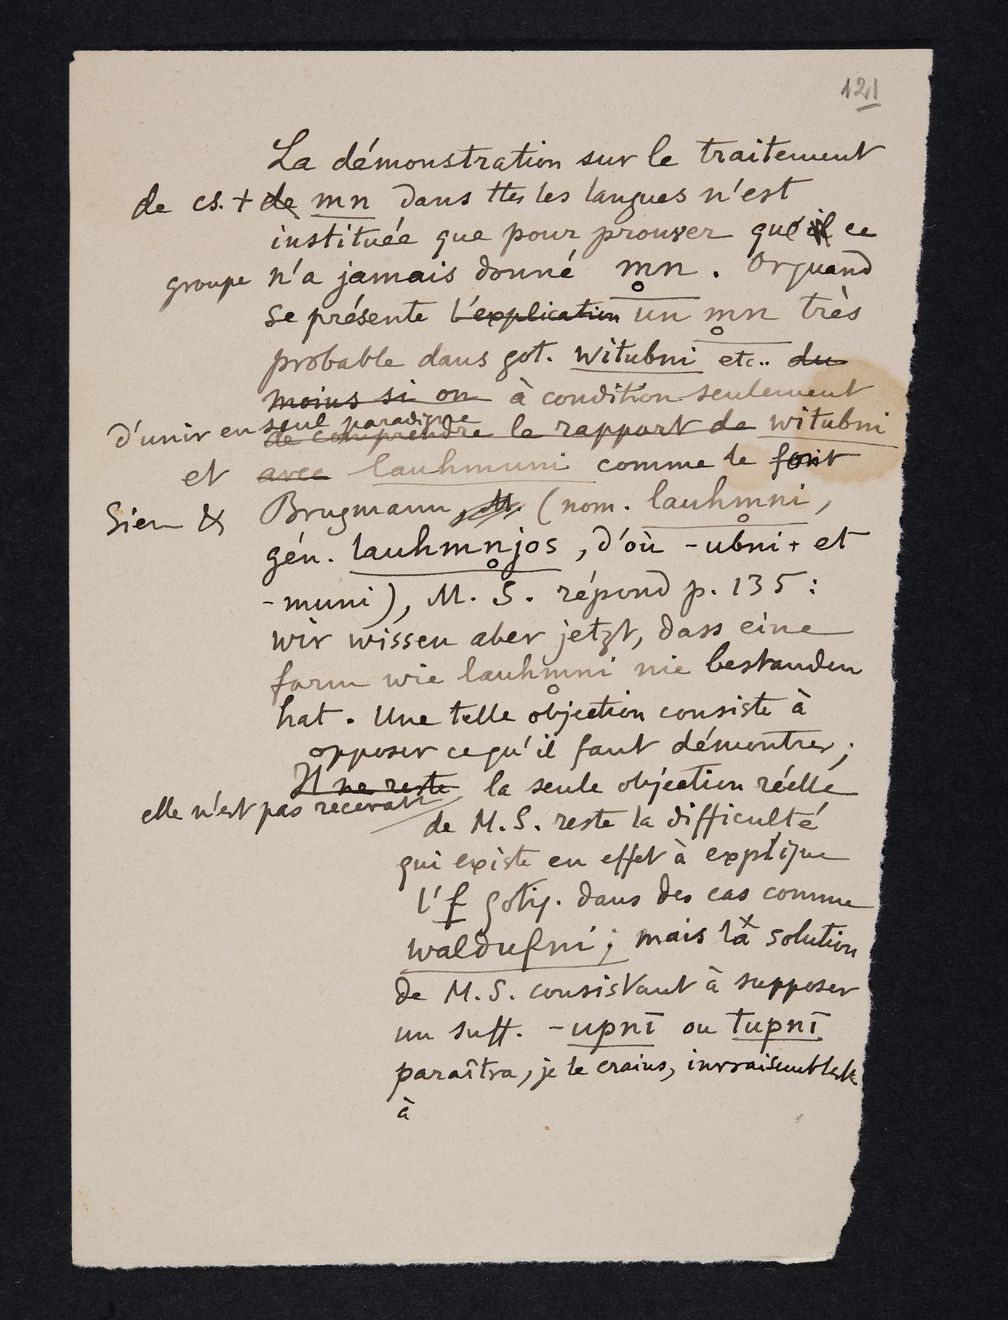 121
La démonstration sur le traitement
de cs. + de mn dans ttes les langues n'est
instituée que pour prouver qu'il ce
groupe n'a jamais donné mn̥. Or quand
se présente l'explication un mn̥ très
probable dans got. witubni etc.. du
moins si on à condition seulement
d'unir en seul paradigme
de comprendre le rapport de witubni
et avec lauhmuni comme le font
Siev & Brugmann, M. (nom. lauhmn̥i,
gén. lauhmn̥jos, d'où -ubni + et
-muni), M. S. répond p. 135 :
wir wissen aber jetzt, dass eine
form wie lauhm̥ni nie bestanden
hat. Une telle objection consiste à
opposer ce qu'il faut démontrer ;
Il ne reste la seule objection réelle
elle n'est pas recevable
de M. S. reste la difficulté
qui existe en effet à expliquer
l'f gotiq. dans des cas comme
waldufni ; mais la solution
de M. S. consistant à supposer
un suff. -upnī ou tupnī
paraîtra, je le crains, invraisemblable
à